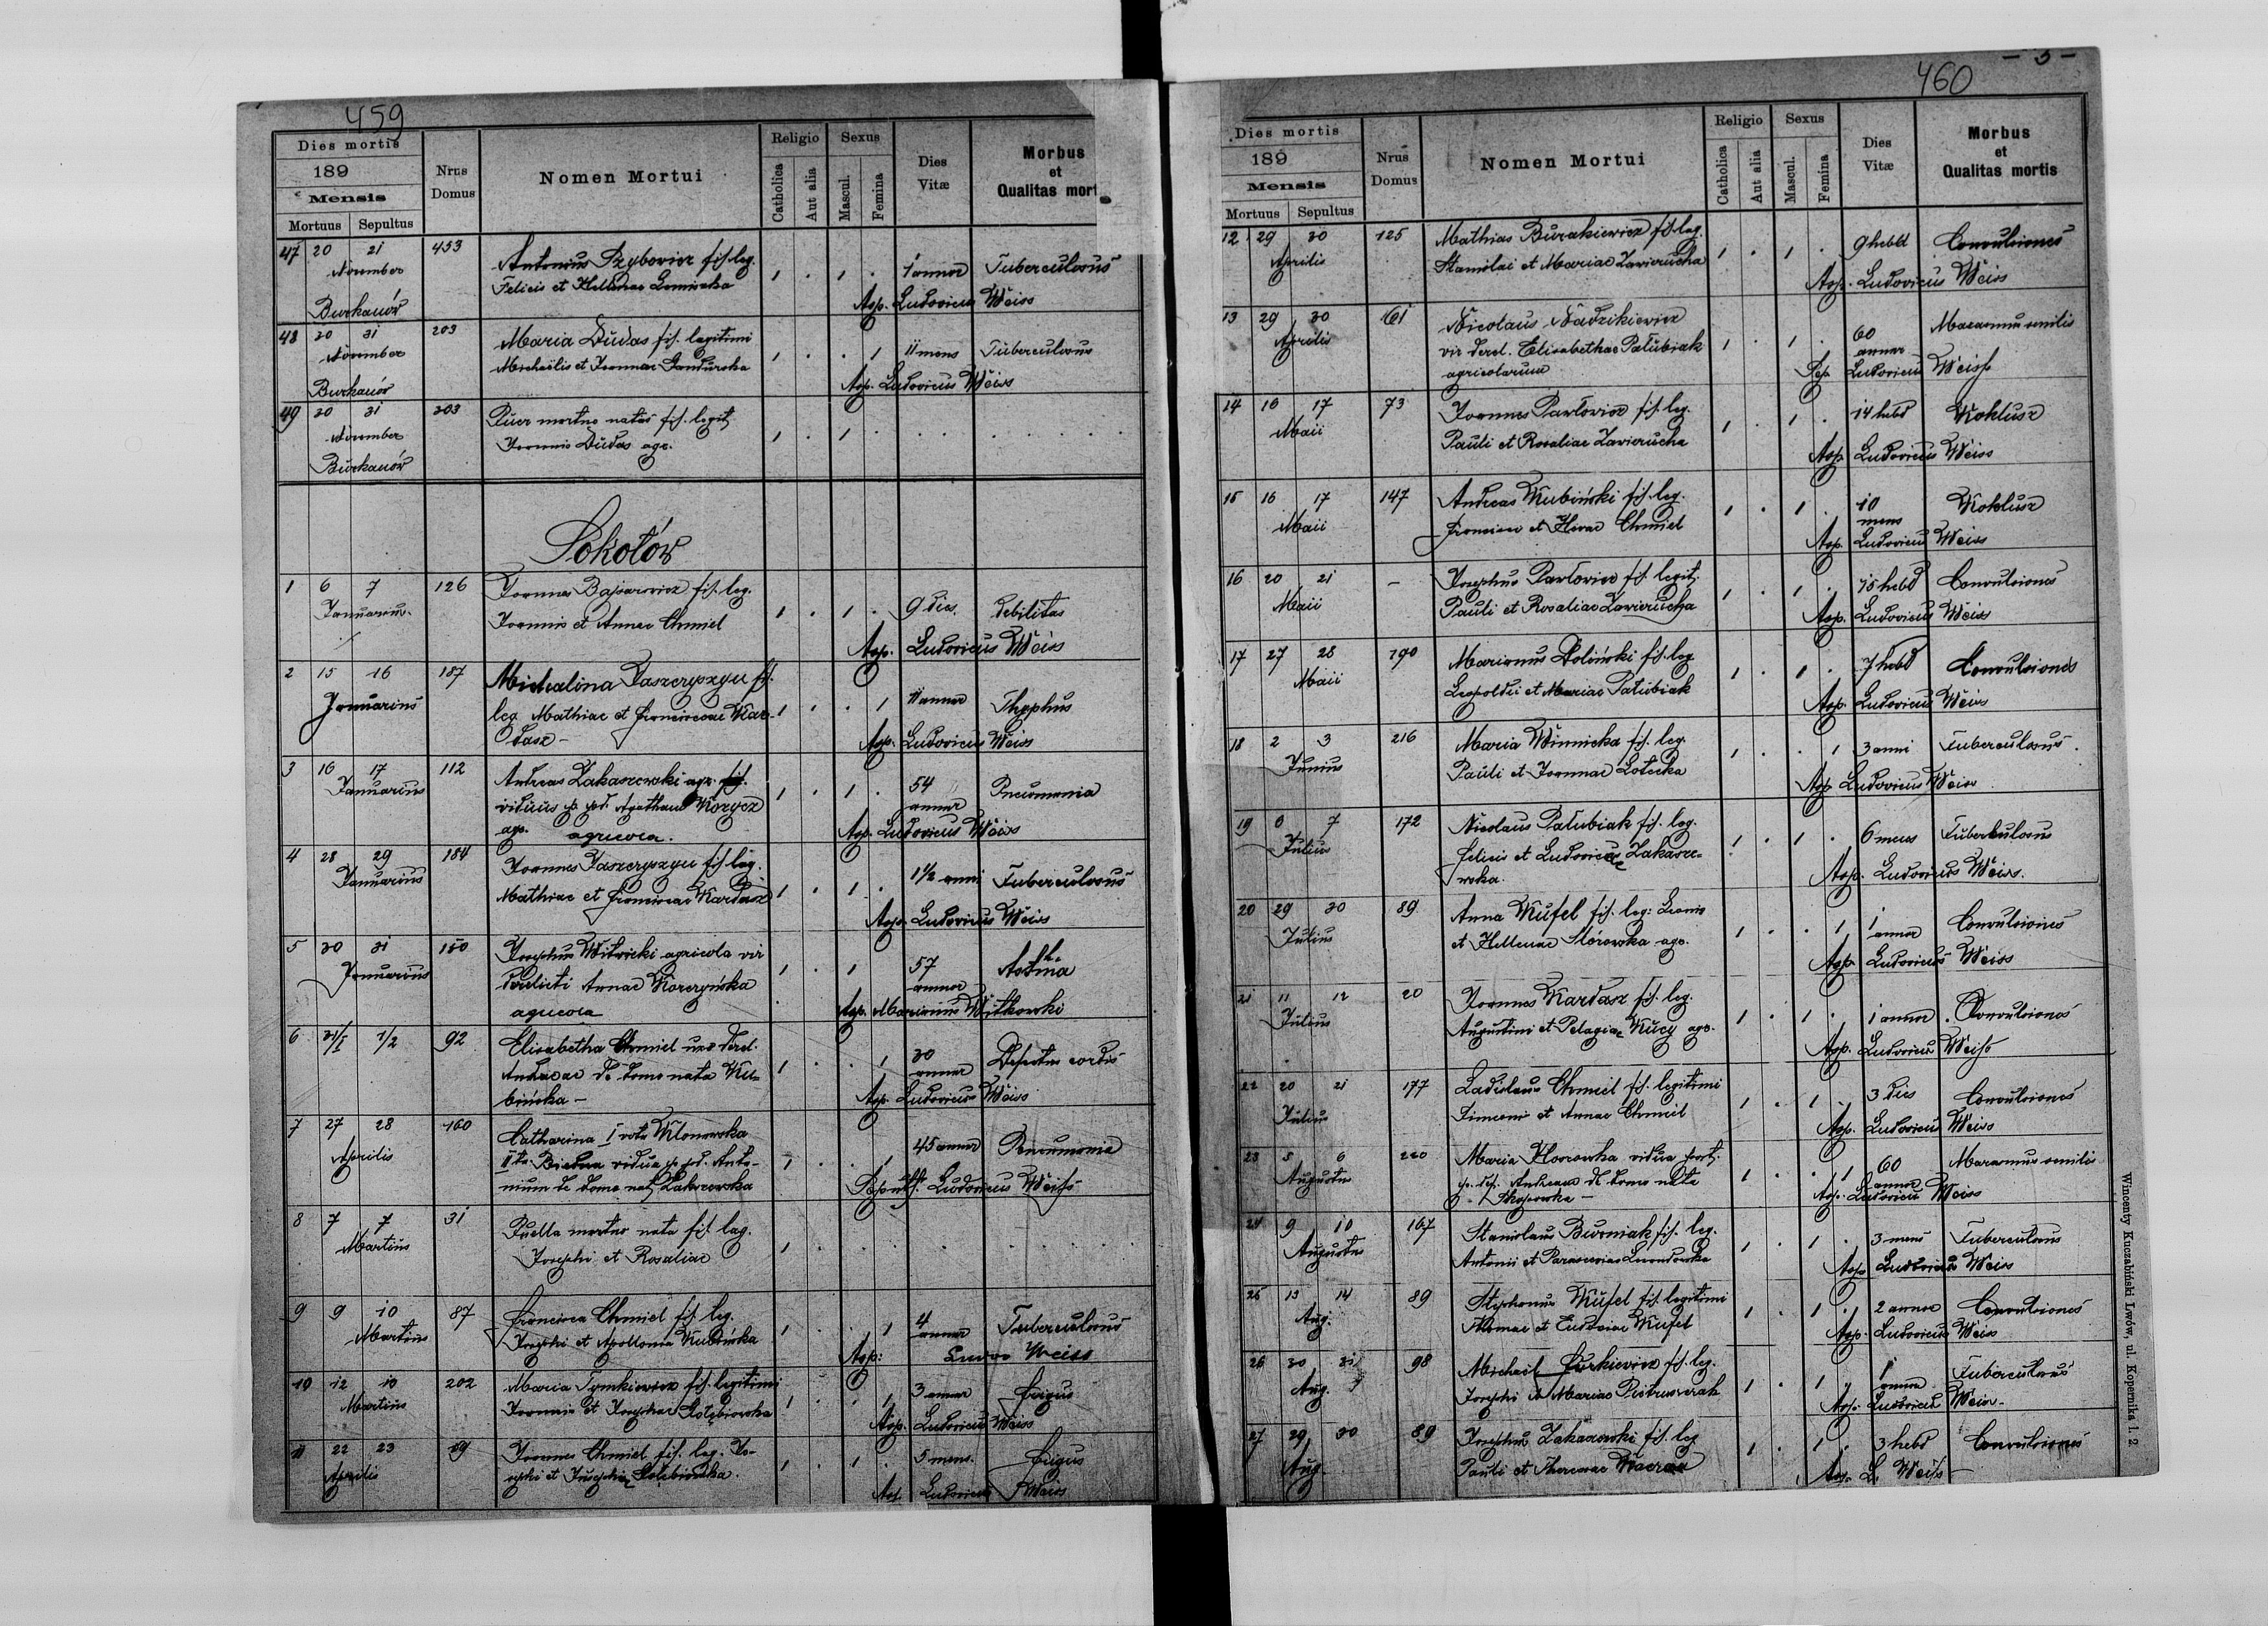 459
Dies mortis
189
Mensis
Mortuus Sepultus
Nrus Domus
Nomen Mortui
Religio
Catholica
Aut alia
Sexus
Mascul.
Femina
Dies Vitæ
Morbus
et
Qualitas mort
47 20 21 453 Antonius fil. leg.
November Felicis et Hellenae 1 1 1 annor Tuberculosus
Burkanów Asp. Ludovicus Weiss
48 30 31 203 Maria Dudas fil. legitimi
November Michaëlis et Joannae 1 1 11 mens Tuberculosus
Burkanów Asp. Ludovicus Weiss
49 30 31 203 Puer mortuo natus fil. legit
November Joannis Dudas agr. 1 1
Burkanów
Sokołów
1 6 7 126 Joannes fil. leg.
Januarius Joannis et Annae Chmiel 1 1 9 dies Debilitas
Asp. Ludovicus Weiss
2 15 16 187 Michalina Jaszczyszyn fil.
Januarius leg. Mathiae et Franciscae Kar- 1 1 11 annor Thyphus
dasz - Asp. Ludovicus Weiss
3 16 17 112 Andreas Zakaszewski agr.
Januarius viduus p. def. Agatham Korycz 1 1 54 annor Pneumonia
agr. agricola. Asp. Ludovicus Weiss
4 28 29 184 Joannes Jaszczyszyn fil. leg.
Januarius Mathiae et Franciscae Kardasz 1 1 1 1/2 anni Tuberculosus
Asp. Ludovicus Weiss
5 30 31 150 Josephus Witwicki agricola vir
Januarius derelicti Annae Korczyńska 1 1 57 annor Asthma
agricola Asp. Marianus Witkowski
6 31/I 1/2 92 Elisabetha Chmiel uxor derel.
Andreae de domo nata Ku- 1 1 30 annor Defectus cordis
bińska - Asp. Ludovicus Weiss
7 27 28 160 Catharina I voto Klonowska
Aprilis II to Bielna vidua p. def. Anto- 1 1 45 annor Pneumonia
nium de domo nat Zakszewska Ludovicus Weiss
8 7 7 31 Puella mortuo nata fil. leg.
Martius Josephi et Rosaliae 1
9 9 10 87 Francisca Chmiel fil. leg.
Martius Josephi et Apollonia Kubińska 1 1 4 annor Tuberculosus
Asp: Ludov Weiss
10 12 10 202 Maria Tymkiewicz fil. legitimi
Martius Joannis et Josephae Gołębiowska 1 1 3 annor Frigus
Asp. Ludovicus Weiss
11 22 23 Joannes Chmiel fil. leg. Jo-
Aprilis sephi et Josephae Gołębiowska. 1 1 5 mens. Frigus
Asp. Ludovicus Weiss
- 5 -
460
Dies mortis
189
Mensis
Mortuus Sepultus
Nrus Domus
Nomen Mortui
Religio
Catholica
Aut alia
Sexus
Mascul.
Femina
Dies Vitæ
Morbus
et
Qualitas mortis
12 29 30 125 Mathias Burakiewicz fil. leg.
Aprilis Stanislai et Mariae Zawierucha 1 1 9 hebd Convulsiones
Asp. Ludovicus Weiss
13 29 30 161 Nicolaus Nadzikiewicz
Aprilis vir derel. Elisabethae Pałubiak 1 1 60 annor Marasmus senilis
agricolarum Sep. Ludovicus Weiss
14 16 17 73 Joannes Pawłowicz fil. leg.
Maii Pauli et Rosaliae Zawierucha 1 1 14 hebd Koklusz
Asp. Ludovicus Weiss
15 16 17 147 Andreas Kubiński fil. leg.
Maii Chmiel 1 1 10 mens Koklusz
Asp. Ludovicus Weiss
16 20 21 - Josephus Pawłowicz fil. legit.
Maii Pauli et Rosaliae Zawierucha 1 1 15 hebd Convulsiones
Asp. Ludovicus Weiss
17 27 28 190 Marianus Doliński fil. leg
Maii Leopoldi et Mariae Pałubiak 1 1 7 hebd Convulsiones
Asp. Ludovicus Weiss
18 2 3 216 Maria Winnicka fil. leg.
Junius Pauli et Joannae 1 1 3 anni Tuberculosus.
Asp. Ludovicus Weiss
19 6 7 172 Nicolaus Pałubiak fil. leg.
Julius Felicis et Ludovicae Zakasze- 1 1 6 mens Tuberkulosus
wska. Asp. Ludovicus Weiss.
20 29 30 89 Anna Kufel fil. leg: Leonis
Julius et Hellenae agr. 1 1 1 annor Convulsiones
Asp. Ludovicus Weiss
21 11 12 20 Joannes Kardasz fil. leg.
Julius Augustini et Pelagiae Kucy agr. 1 1 1 annor Convulsiones
Asp. Ludovicus Weiss
22 20 21 177 Ladislaus Chmiel fil. legitimi
Julius Simeonis et Annae Chmiel 1 1 3 dies Convulsiones
Asp. Ludovicus Weiss
23 5 6 220 Maria vidua post.
Augustus p. def. Andream de domo nata 1 1 60 annor Marasmus senilis
Asp. Ludovicus Weiss
24 9 10 167 Stanislaus Burniak fil. leg.
Augustus Antonii et Parasceviae 1 1 3 mens Tuberculosus
Asp. Ludovicus Weiss
25 13 14 89 Stephanus Kufel fil. legitimi
Aug. Thomae et Eudoviae Kufel 1 1 2 annor Convulsiones
Asp. Ludovicus Weiss
26 30 31 98 Michael Furkiewicz fil. leg.
Aug. Josephi et Mariae Pietruszczak 1 1 1 annor Tuberculosus
Asp. Ludovicus Weiss
27 29 30 89 Josephus Zakaszewski fil. leg
Aug. Pauli et Theresae 1 1 3 hebd Convulsiones
Asp. L. Weiss
Wincenty Kuczabiński Lwów, ul. Kopernika l. 2